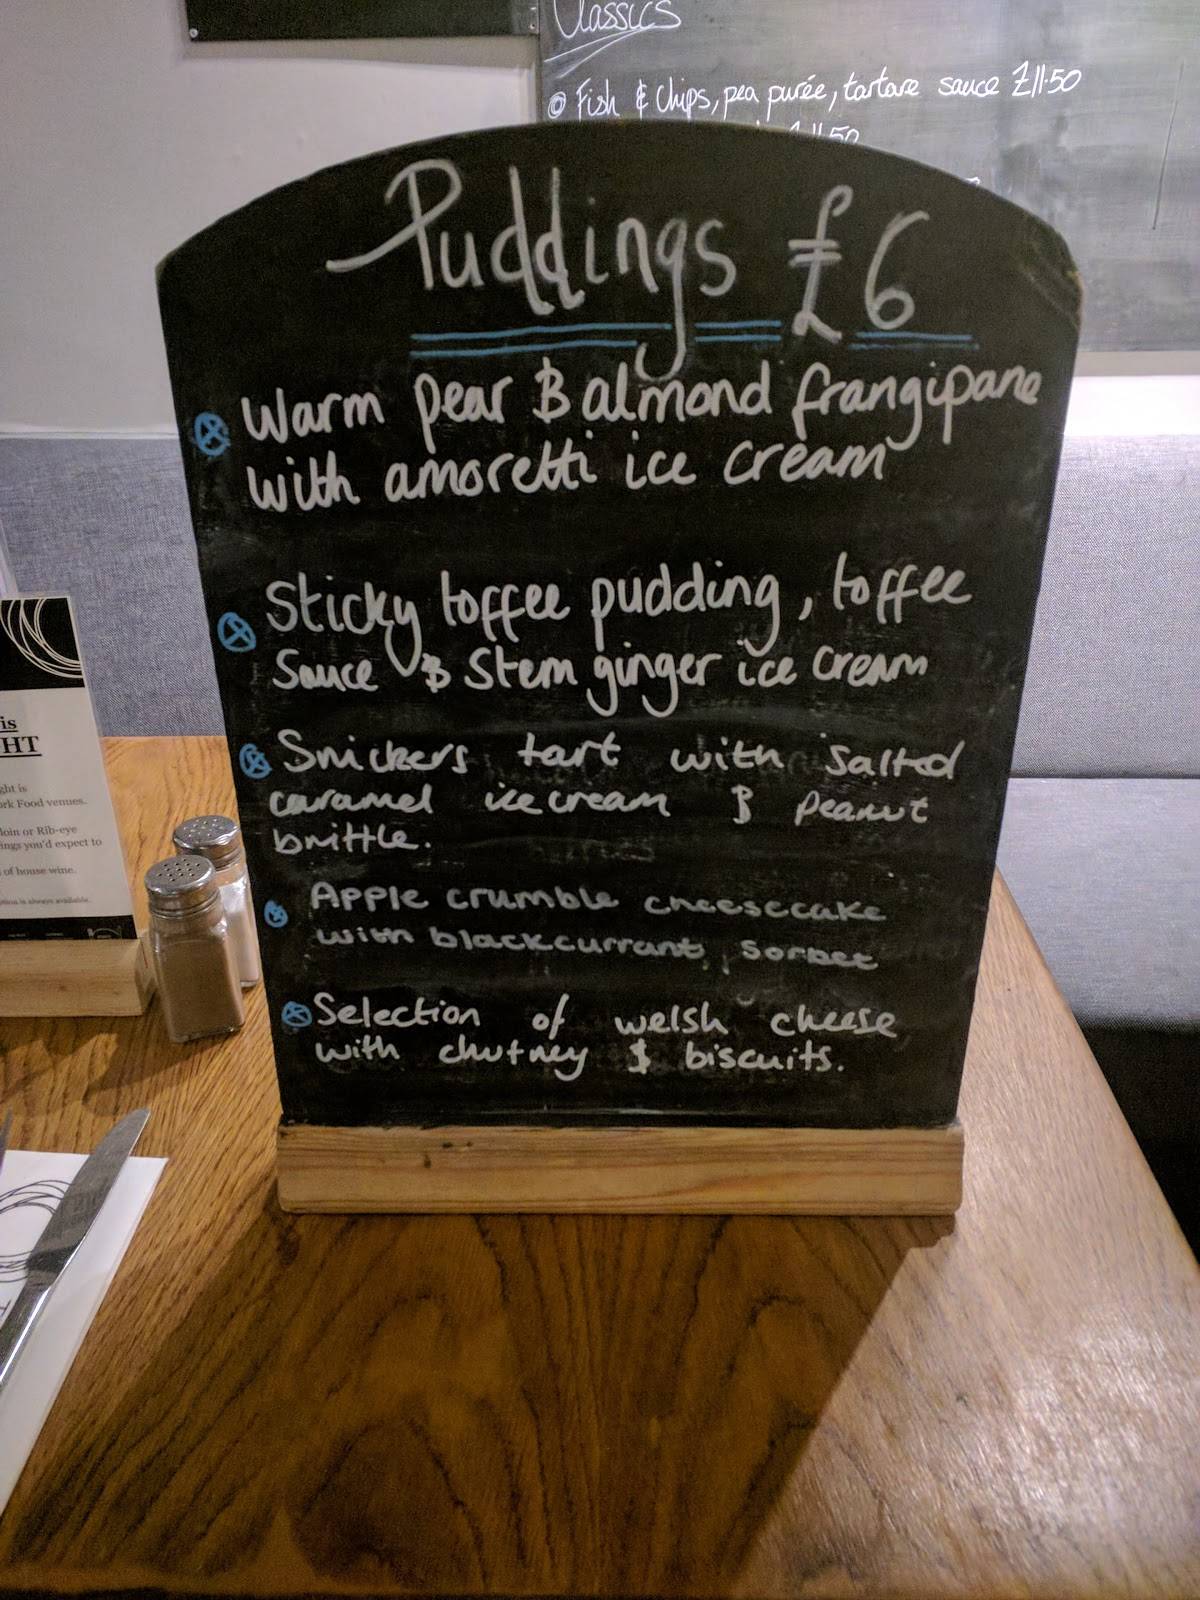 Classics
Fish & Chips, pea purée, tartare sauce £11.50
£11.50
Puddings £6
Warm pear & almond frangipane
with amoretti ice cream
Sticky toffee pudding, toffee
Sauce & Stem ginger ice cream
Snickers tart with salted
caramel ice cream & peanut
brittle.
Apple crumble cheesecake
with blackcurrant sorbet
Selection of welsh cheese
with chutney & biscuits.
is
HT
ght is
ork Food venues.
loin or Rib-eye
ings you'd expect to
of house wine.
ption is always available.